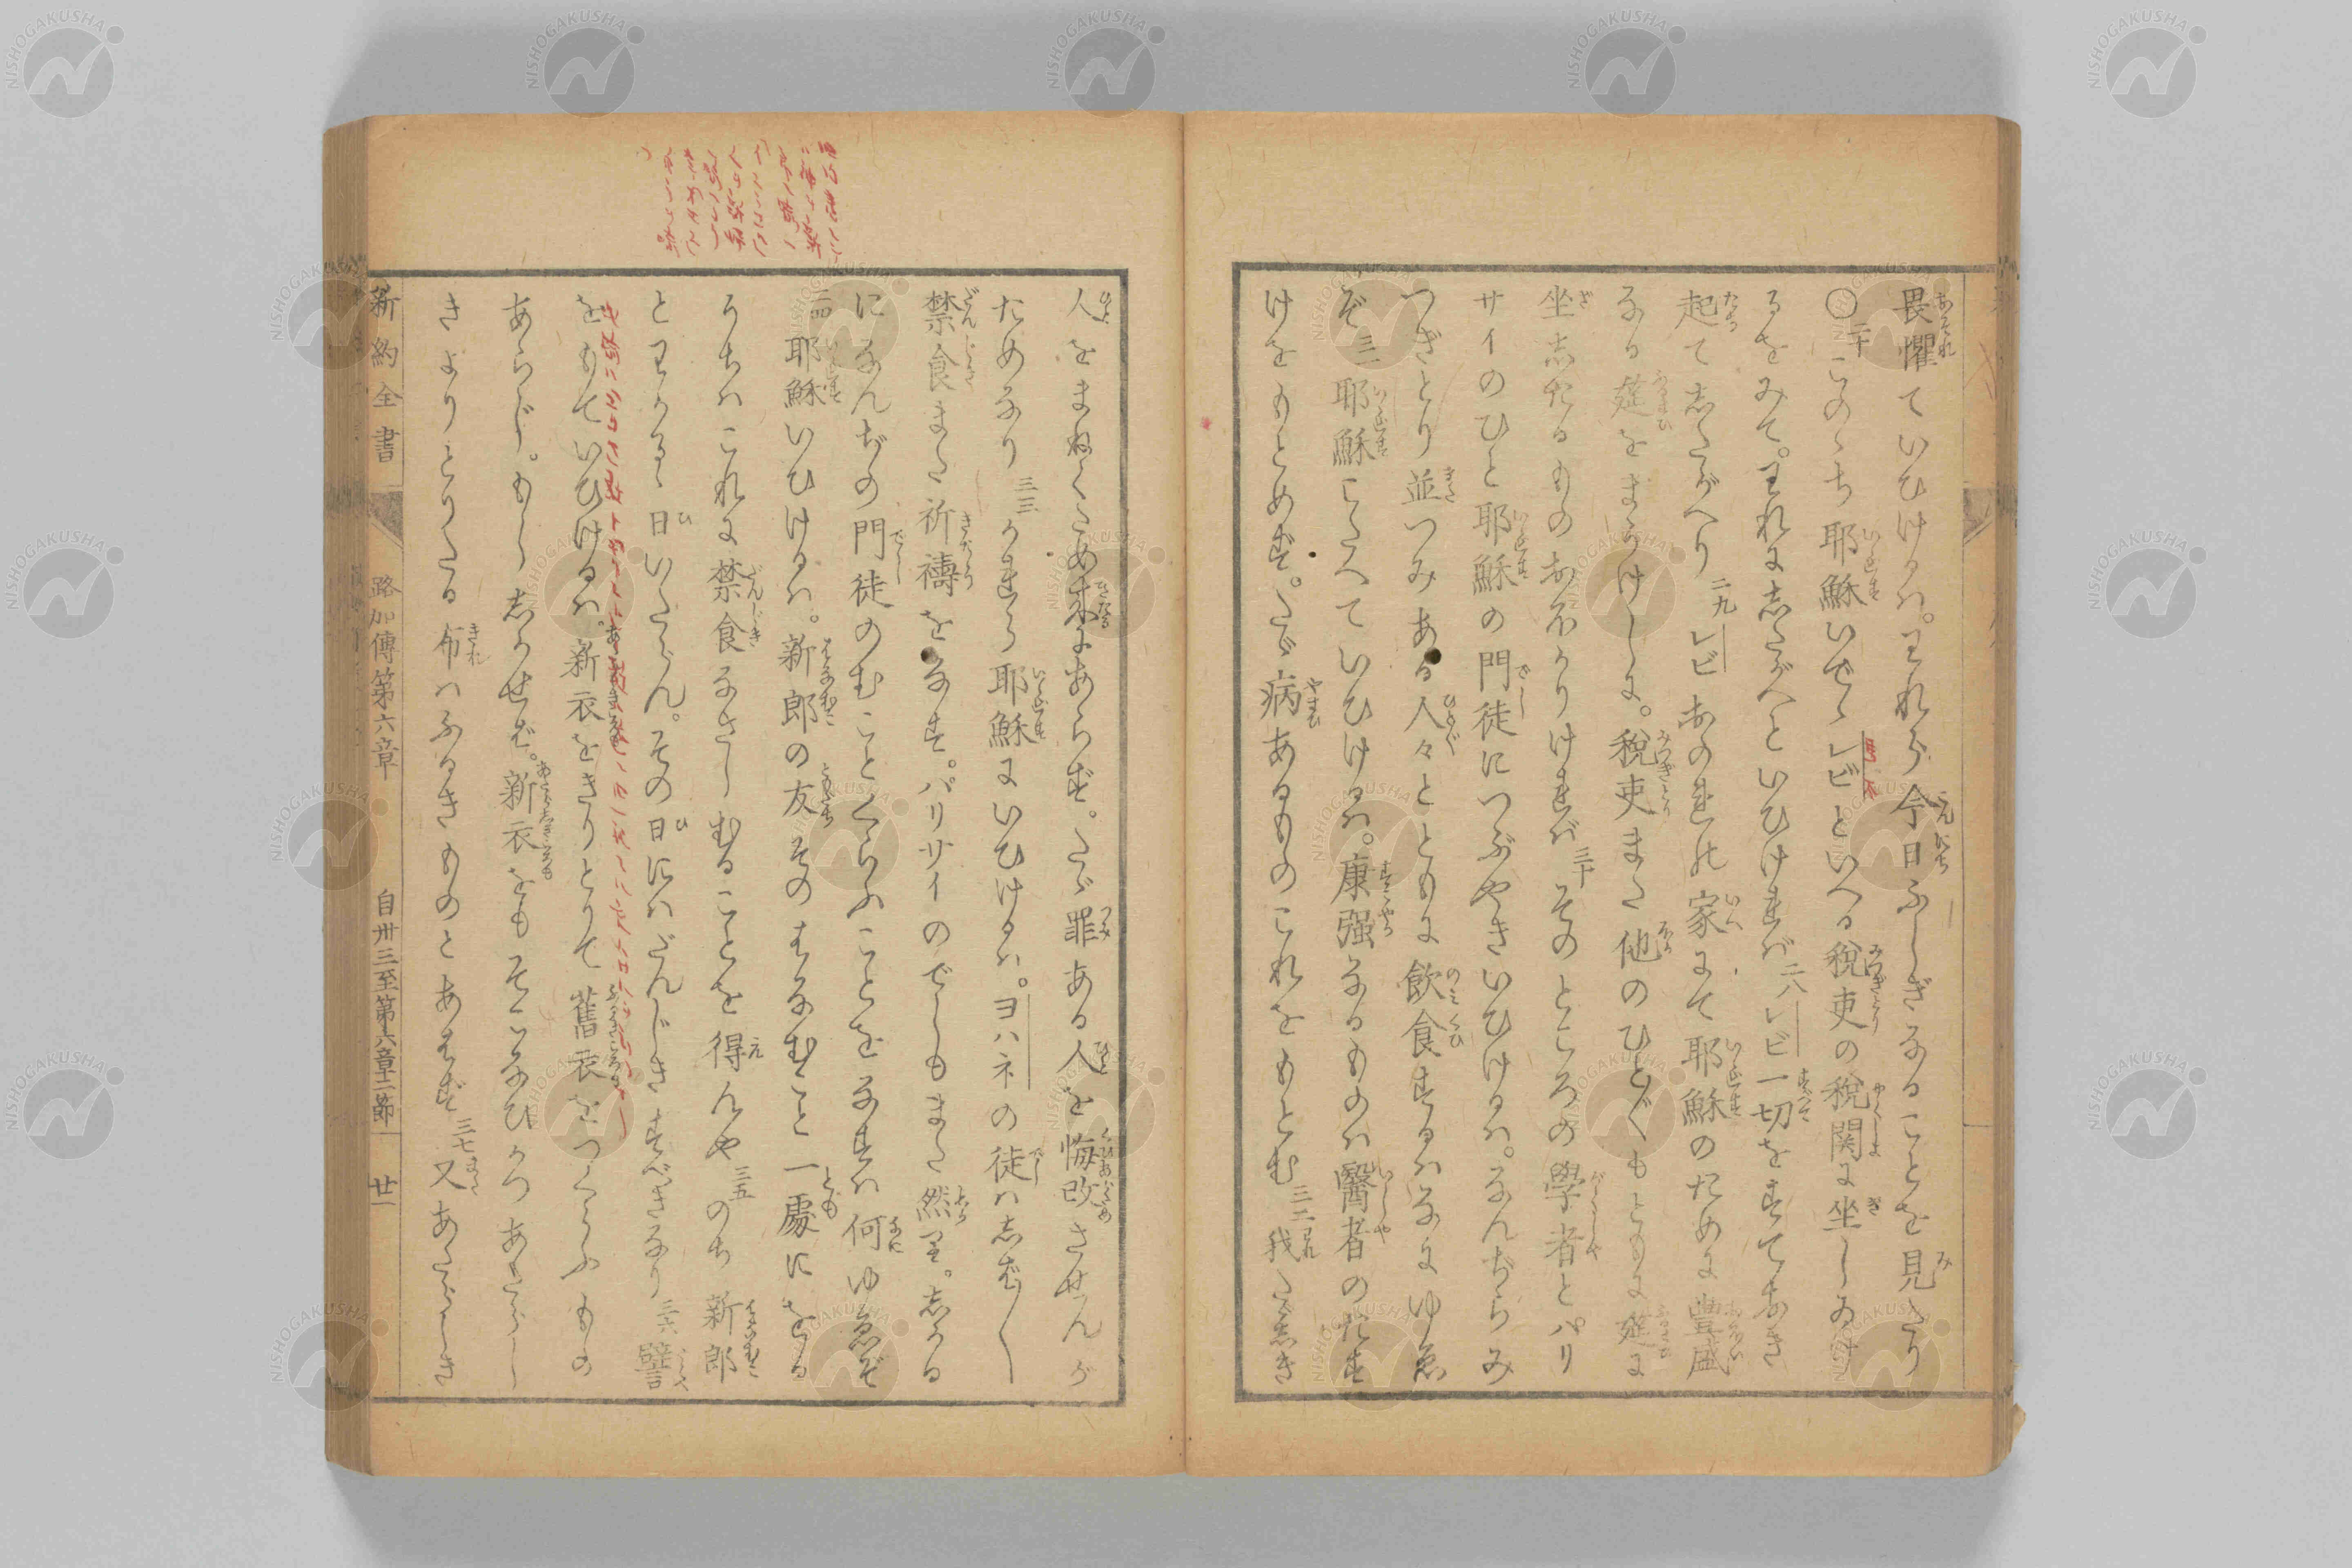 畏懼ていひけるハ。われら今日ふしぎなることを見たり
〇二十七こののち耶穌いでゝレビといへる税吏の税関に坐しゐけ
るをみて。われにしたがへといひければ二八レビ一切をすておき
起てしたがへり二九レビおのれの家にて耶穌のために豊盛
なる筵をまうけしに。税吏また他のひとびともともに筵に
坐したるもの おほかりければ三十そのところの學者とパリ
サイのひと耶穌の門徒につぶやきいひけるハ。なんぢらみ
つぎとり並つみある人々とともに飲食するハなにゆゑ
ぞ三一耶穌こたへていひけるハ。康强なるものハ醫者のたす
けをもとめず。たゞ病あるものこれをもとむ三二我たゞしき
人をまねくため来にあらず。たゞ罪ある人を悔改させんが
ためなり三三かれら耶穌にいひけるハ。ヨハネの徒ハしばしば
禁食また祈禱をなす。パリサイのでしもまた然り。しかる
になんぢの門徒のむことくらふことをなすハ何ゆゑぞ
三四耶穌いひけるハ。新郎の友そのはなむこと一處にをる
うちハこれに禁食なさしむることを得んや三五のち新郎
とわかるゝ日いたらん。その日にハだんじきすべきなり三六譬
をもていひけるハ。新衣をきりとりて舊衣をつくらふもの
あらじ。もししかせば。新衣をもそこなひかつあたらし
きよりとりたる布ハふるきものとあはず三七又あたらしき
新約全書
路加傳第六章
自卅三至第六章二節
廿一
NISHOGAKUSHA